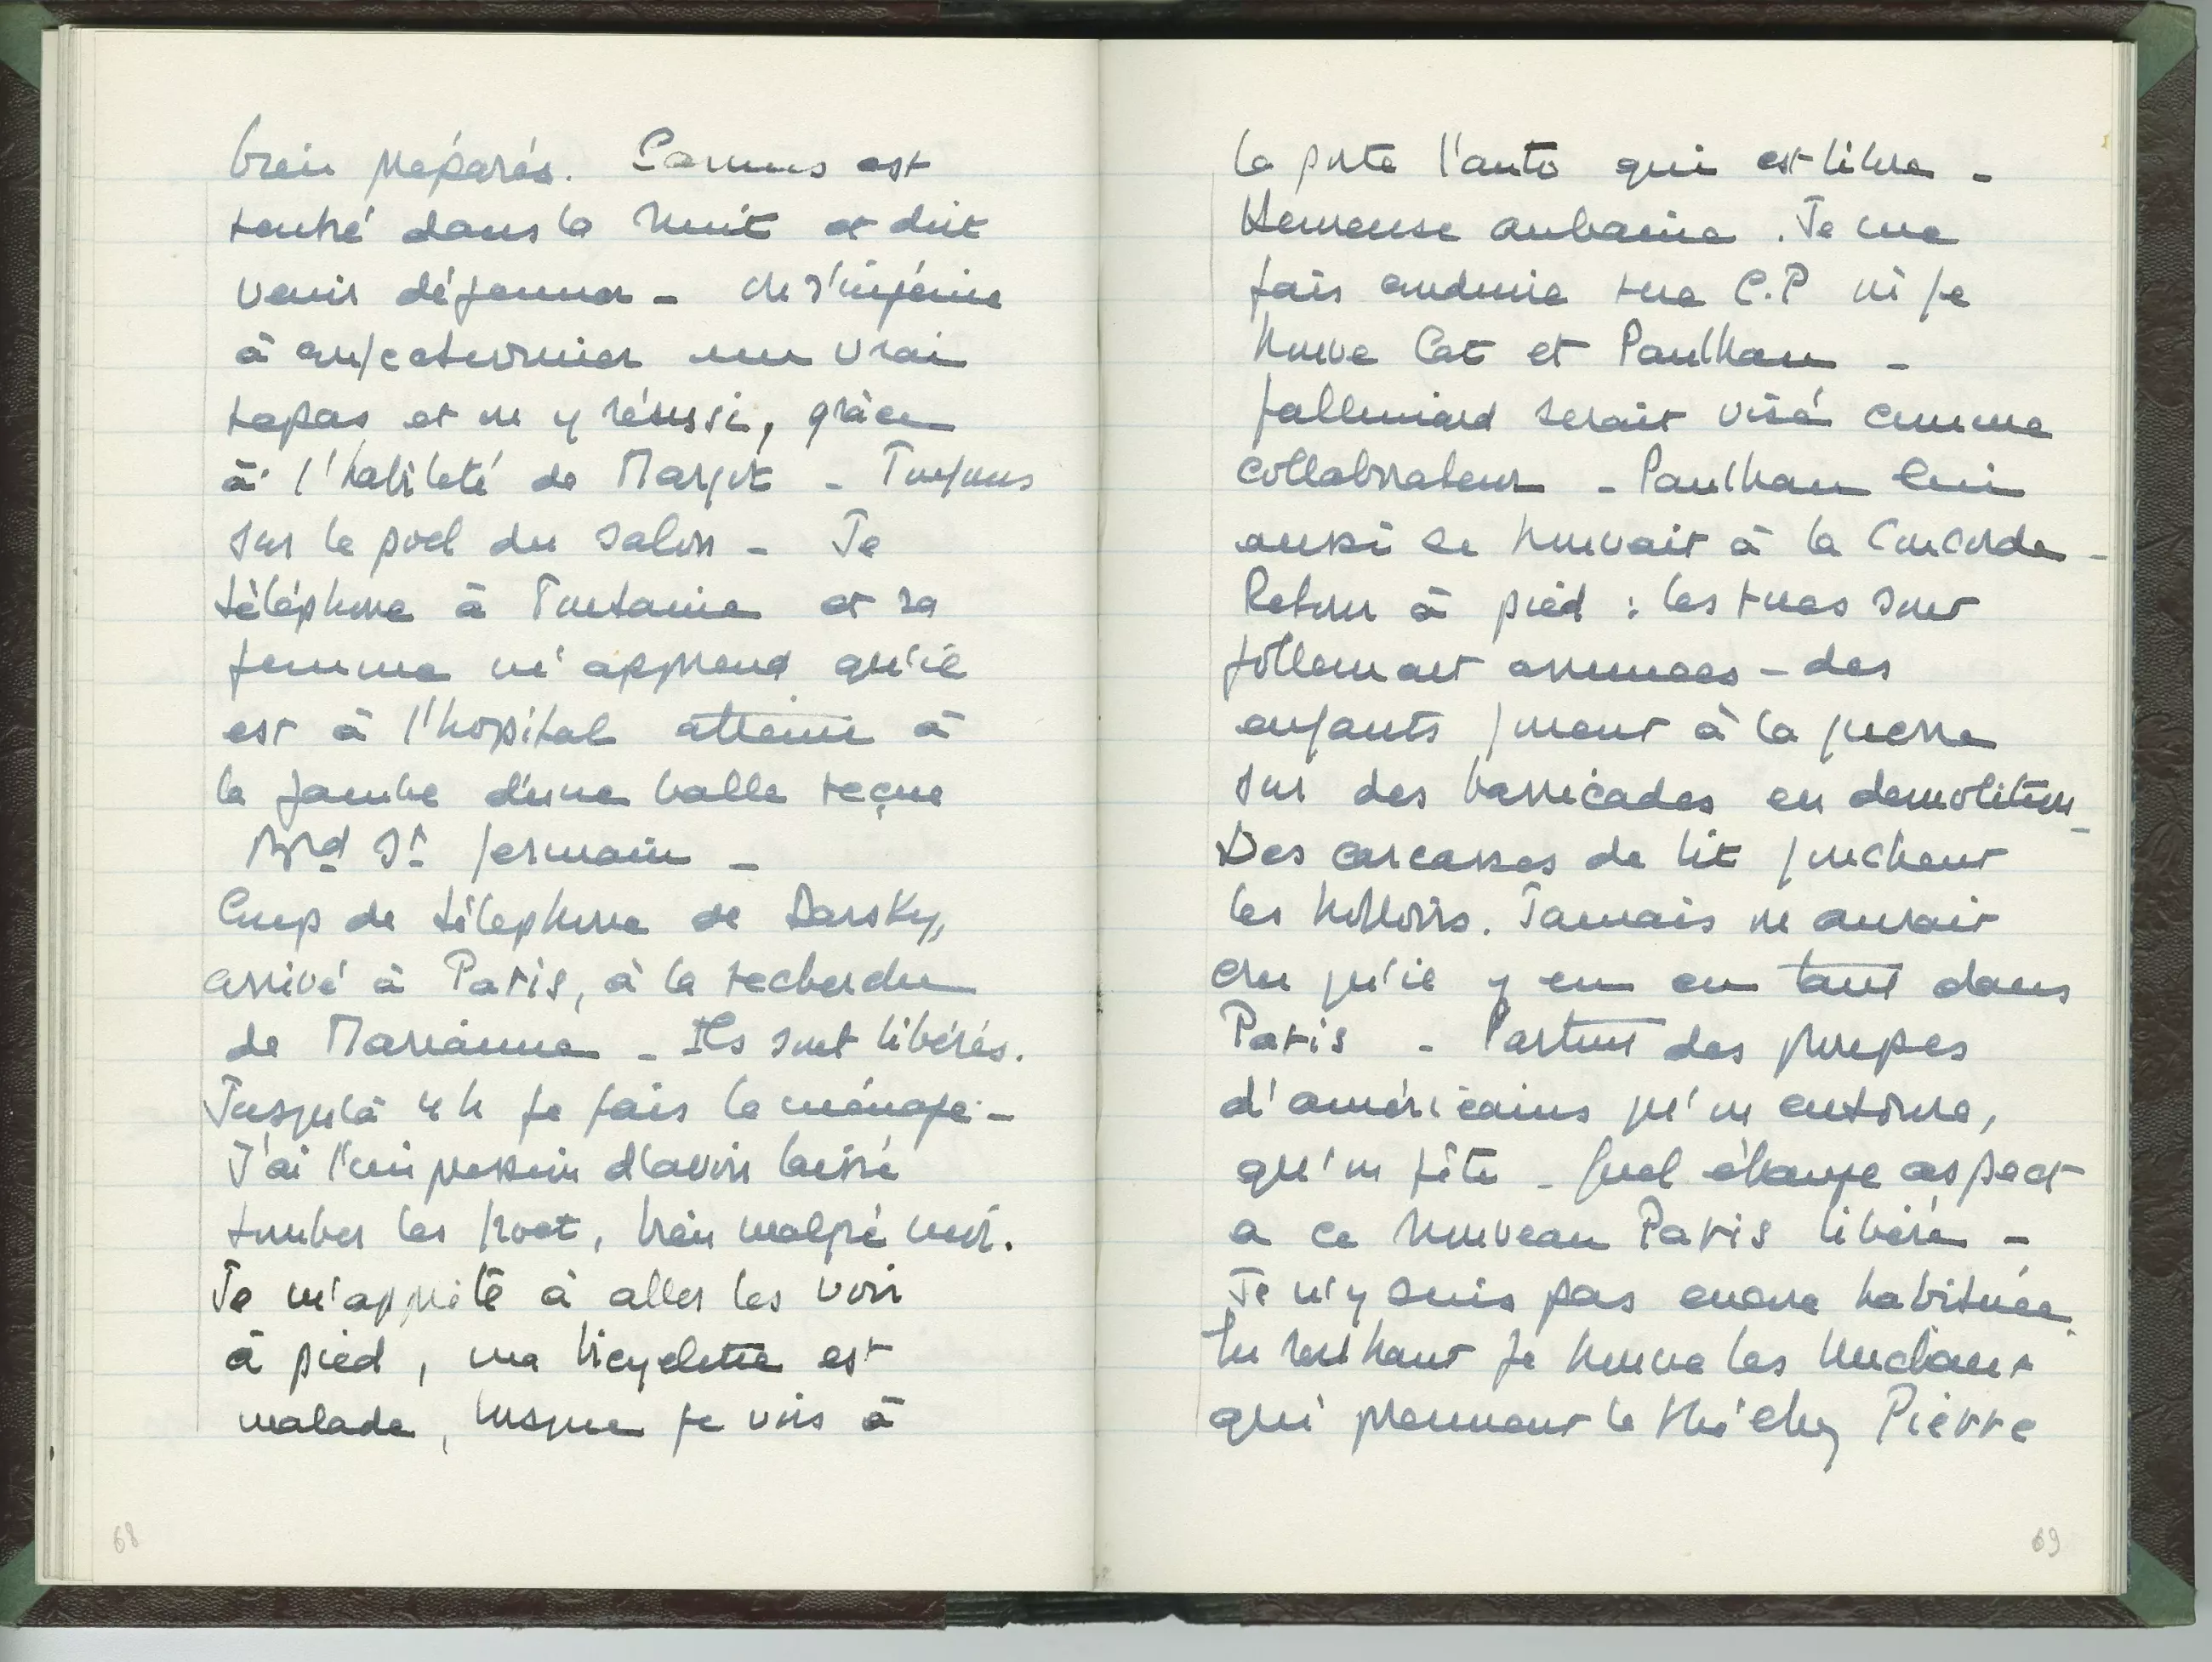 bien préparés. Camus est
rentré dans la nuit et doit
venir déjeuner - on s'ingénie
à confectionner un vrai
repas et on y réussi, grâce
à l'habileté de Margot - Toujours
sur le poel du salon - Je
téléphone à Fontaine et sa
femme m'apprend qu'il
est à l'hopital atteint à
la jambe d'une balle reçue
Bd St Germain -
Coup de téléphone de Darsky,
arrivé à Paris, à la recherche
de Marianne - Ils sont libérés.
Jusqu'à 4 h je fais le ménage -
J'ai l'impression d'avoir laissé
tomber les , bien malgré moi.
Je m'apprête à aller les voir
à pied, ma bicyclette est
malade, lorsque je vois à
la porte l'auto qui est libre -
Heureuse aubaine. Je me
fais conduire rue C.P où je
trouve Cat et Paulhan -
Gallimard serait visé comme
collaborateur - Paulhan lui
aussi se trouvait à la Concorde -
Retour à pied : les rues sont
follement animées - des
enfants jouent à la guerre
sur des barricades en demolition -
Des carcasses de lit jonchent
les trottoirs. Jamais on aurait
cru qu'il y en eu tant dans
Paris - Partout des groupes
d'américains qu'on entoure,
qu'on fête - Quel étrange aspect
a ce nouveau Paris libéré -
Je n'y suis pas encore habituée.
En rentrant je trouve les
qui prennent le thé chez Pierre
68
69